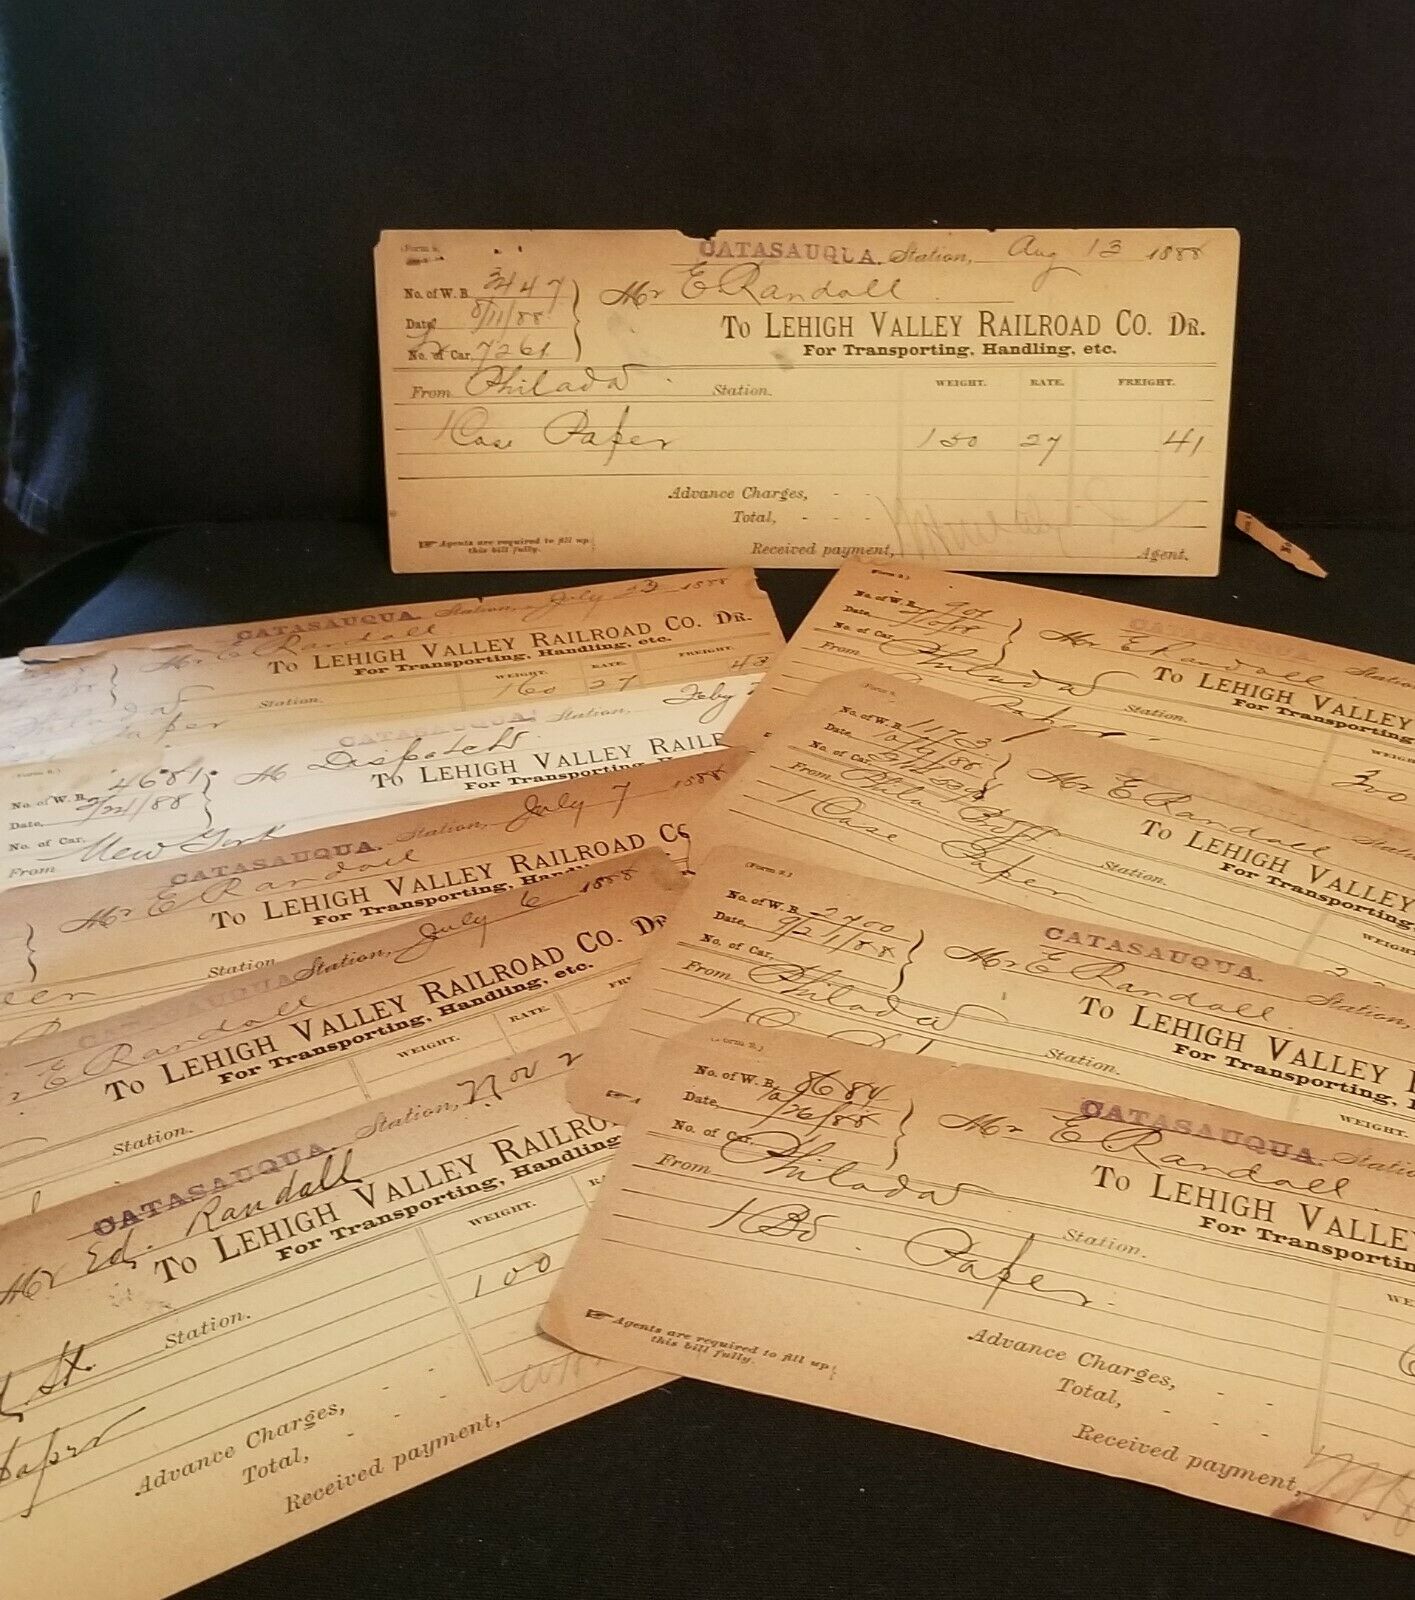 (Form 2.)
CATASAUQUA. Station, Aug 13 1888
No. of W. B. 3447
Mr E Randall
Date, 8/11/88
To LEHIGH VALLEY RAILROAD CO. DR.
No. of Car, 7261
For Transporting, Handling, etc.
From Philada Station. WEIGHT. RATE. FREIGHT.
1 Case Paper 150 27 41
Advance Charges, - -
Total, - - -
☞ Agents are required to fill up this bill fully.
Received payment, Agent.
CATASAUQUA. Station, July 23 1888
Mr E Randall
To LEHIGH VALLEY RAILROAD CO. DR.
For Transporting, Handling, etc.
Philada Station. WEIGHT. RATE. FREIGHT.
Paper 160 27 43
(Form 2.)
CATASAUQUA. Station, Feby
No. of W. B. 4681
M Dispatch
Date, 2/24/88
To LEHIGH VALLEY RAILR
No. of Car,
For Transporting,
From New York
CATASAUQUA. Station, July 7 1888
Mr E Randall
To LEHIGH VALLEY RAILROAD CO
For Transporting, Hand
Station
CATASAUQUA Station, July 6 1888
E Randall
To LEHIGH VALLEY RAILROAD CO. DR
For Transporting, Handling, etc.
Station. WEIGHT. RATE. FR
CATASAUQUA. Station, Nov 2
Mr Ed. Randall
To LEHIGH VALLEY RAILRO
For Transporting, Handling
St. Station. WEIGHT. R
Paper 100
Advance Charges, - -
Total, - -
Received payment,
(Form 2.)
CATASAUQUA Station
No. of W. B. 901
Mr E Randall
Date,
To LEHIGH VALLEY
No. of Car,
For Transporting
From Philada Station. WEIG
Paper
No. of W. B. 1173
Mr E Randall Statio
Date, 10/19/88
To LEHIGH VALLEY
No. of Car,
For Transporting,
From Philada Station. WEIGHT
1 Case Paper
(Form 2.)
CATASAUQUA. Station,
No. of W. B. 2700
Mr E Randall
Date, 9/21/88
To LEHIGH VALLEY
No. of Car,
For Transporting,
From Philada Station. WEIGHT.
1
(Form 2.)
CATASAUQUA. Statio
No. of W. B. 8684
Mr E Randall
Date, 10/26/88
To LEHIGH VALLE
No. of Car,
For Transportin
From Philada Station. WE
1 Bd. Paper
☞ Agents are required to fill up this bill fully.
Advance Charges, -
Total, - - -
Received payment,